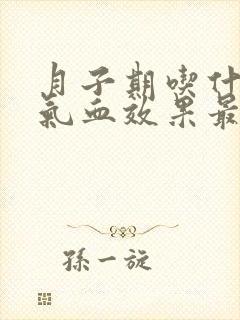 月子期喫什
氣血效果最
孫一旋